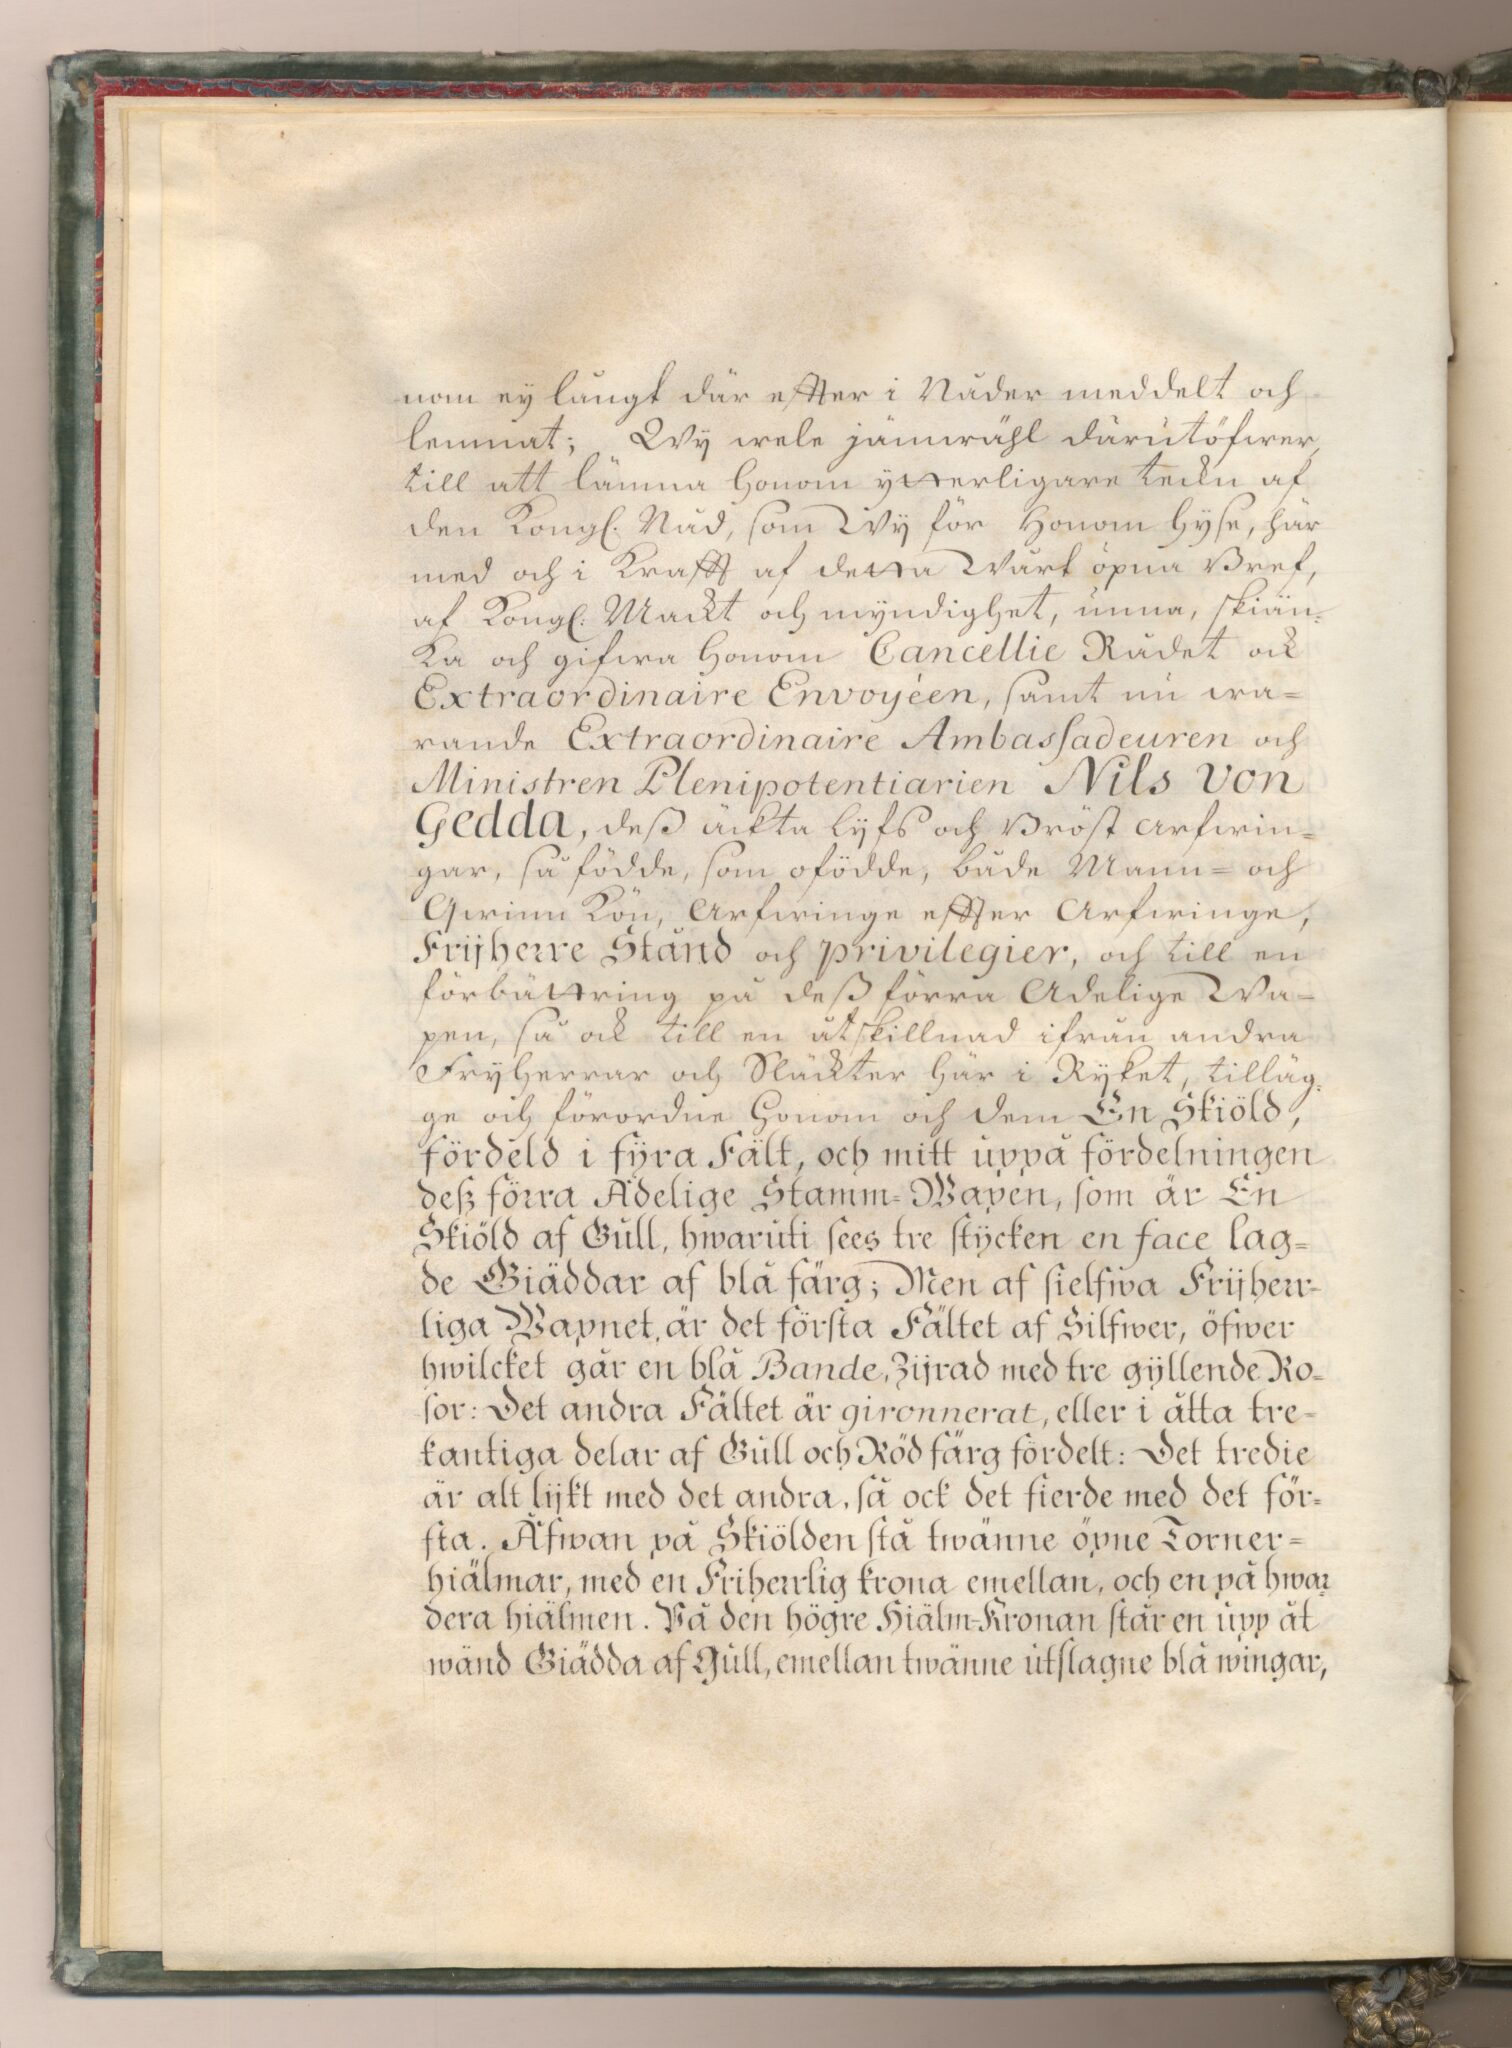 nom ey långt där effter i Nåder meddelt och
lemnat; Wÿ wele jämwähl därutöfwer,
till att lämna honom ytterligare teckn af
den Kongl. Nåd, som Wÿ för Honom hyse, här
med och i Krafft af detta Wårt öpna Bref,
af Kongl. Mackt och myndighet, unna, skiän-
ka och gifwa honom Cancellie Rådet ock
Extraordinaire Envoyéen, samt nu wa=
rande Extraordinaire Ambassadeuren och
Ministren Plenipotentiarien Nils von
Gedda, deß äckta Lÿfs och Bröst Arfwin=
gar, så födde, som ofödde, både Mann= och
Qwinn Kön, Arfwinge effter Arfwinge,
Frijherre Stånd och privilegier, och till en
förbättring på deß förra Adelige Wa=
pen, så ock till en åtskillnad ifrån andra
Fryherrar och Släckter här i Ryket, tilläg-
ge och förordne Honom och dem En Skiöld,
fördeld i fÿra Fält, och mitt uppå fördelningen
deß förra Adelige Stamm=Wapen, som är En
Skiöld af Gull, hwaruti sees tre stÿcken en face lag=
de Giäddar af blå färg; Men af sielfwa Frijherr-
liga Wapnet, är det första Fältet af Silfwer, öfwer
hwilcket går en blå Bande, Zijrad med tre gÿllende Ro=
sor: Det andra Fältet är gironnerat, eller i åtta tre-
kantiga delar af Gull och Röd färg fördelt: Det tredie
är alt lijkt med det andra, så ock det fierde med det för=
sta. Äfwan på Skiölden stå twänne öpne Torner=
hiälmar, med en Friherrlig krona emellan, och en på hwar
dera hiälmen. På den högre Hiälm-Kronan står en upp åt
wänd Giädda af Gull, emellan twänne utslagne blå wingar,